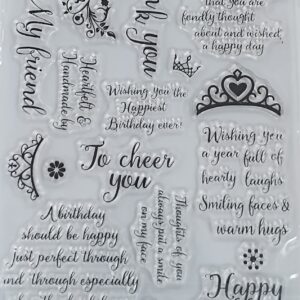 that you are
fondly thought
about and wished
a happy day
My friend
Heartfelt &
Handmade by
you
Wishing you the
Happiest
Birthday ever!
Wishing you
a year full of
hearty laughs
Smiling faces &
warm hugs
To cheer
you
Thoughts of you
always put a smile
on my face
A birthday
should be happy
just perfect through
and through especially
Happy